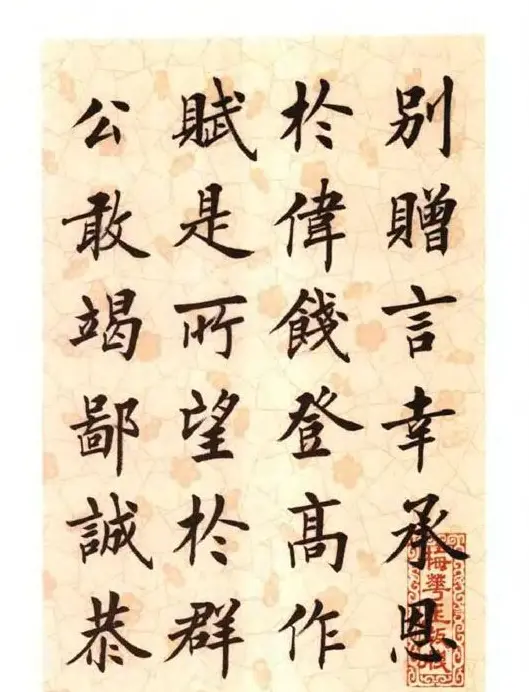 別贈言幸承恩
於偉餞登高作
賦是所望於群
公敢竭鄙誠恭